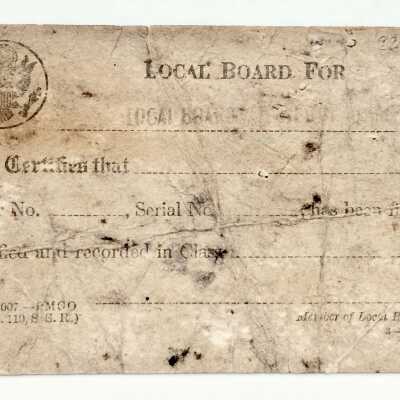 LOCAL BOARD FOR
LOCAL BOARD
Certifies that
r No. , Serial No. , has been fi
fied and recorded in Class
007—PMGO
. 110, S. S. R.)
Member of Local B
3—